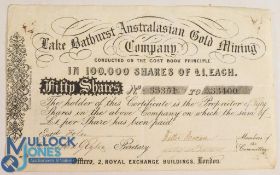 Lake Bathurst Australasian Gold Mining
Company.
CONDUCTED ON THE COST BOOK PRINCIPLE
IN 100,000 SHARES OF £1, EACH.
Fifty Shares No 33351 TO 33400
The holder of this Certificate is the Proprietor of Fifty
Shares in the above Company on which the Sum of
£1 per Share has been paid
Secretary
Members of
the Committee
Offices, 2, ROYAL EXCHANGE BUILDINGS, London.
MULLOCK
JONES